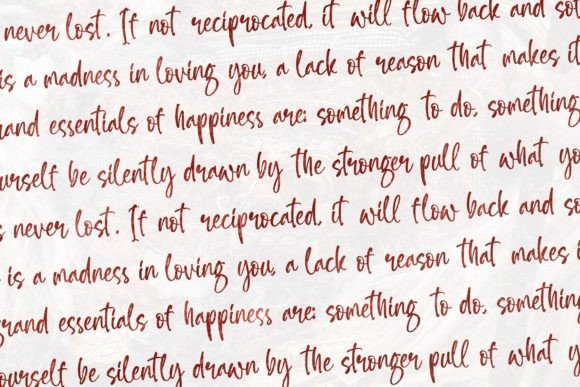 never lost. If not reciprocated, it will flow back and
is a madness in loving you, a lack of reason that makes it
essentials of happiness are: something to do, something
be silently drawn by the stronger pull of what
never lost. If not reciprocated, it will flow back and
is a madness in loving you, a lack of reason that makes
grand essentials of happiness are: something to do,
yourself be silently drawn by the stronger pull of what